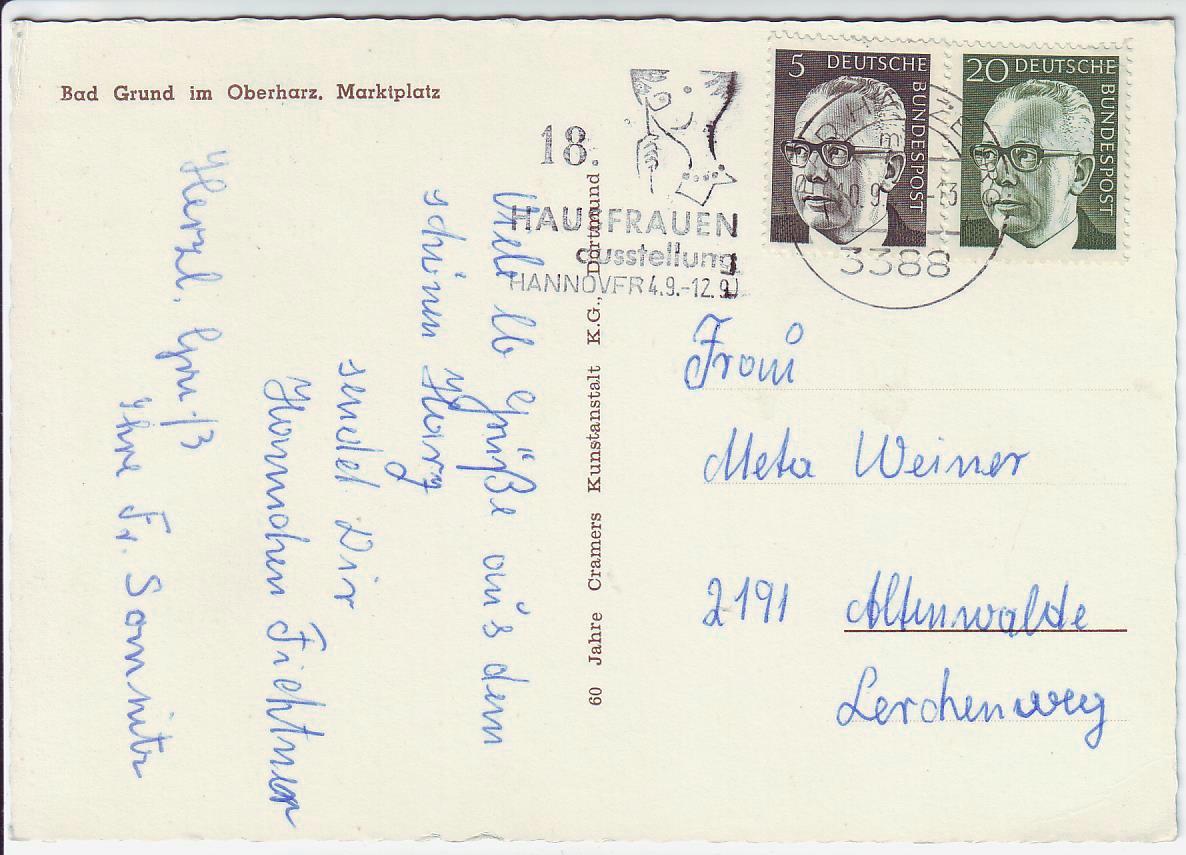 Bad Grund im Oberharz. Marktplatz
18.
HAUSFRAUEN
ausstellung
HANNOVER 4.9.-12.9.
5 DEUTSCHE BUNDESPOST
20 DEUTSCHE BUNDESPOST
0.9. -13
3388
60 Jahre Cramers Kunstanstalt K.G., Dortmund
Viele lb Grüße aus dem
schönen Harz
sendet Dir
Hannchen Fichtner
Herzl. Gruß
Ihre Fr. Sannitz
Frau
Meta Weiner
2191 Altenwalde
Lerchenweg